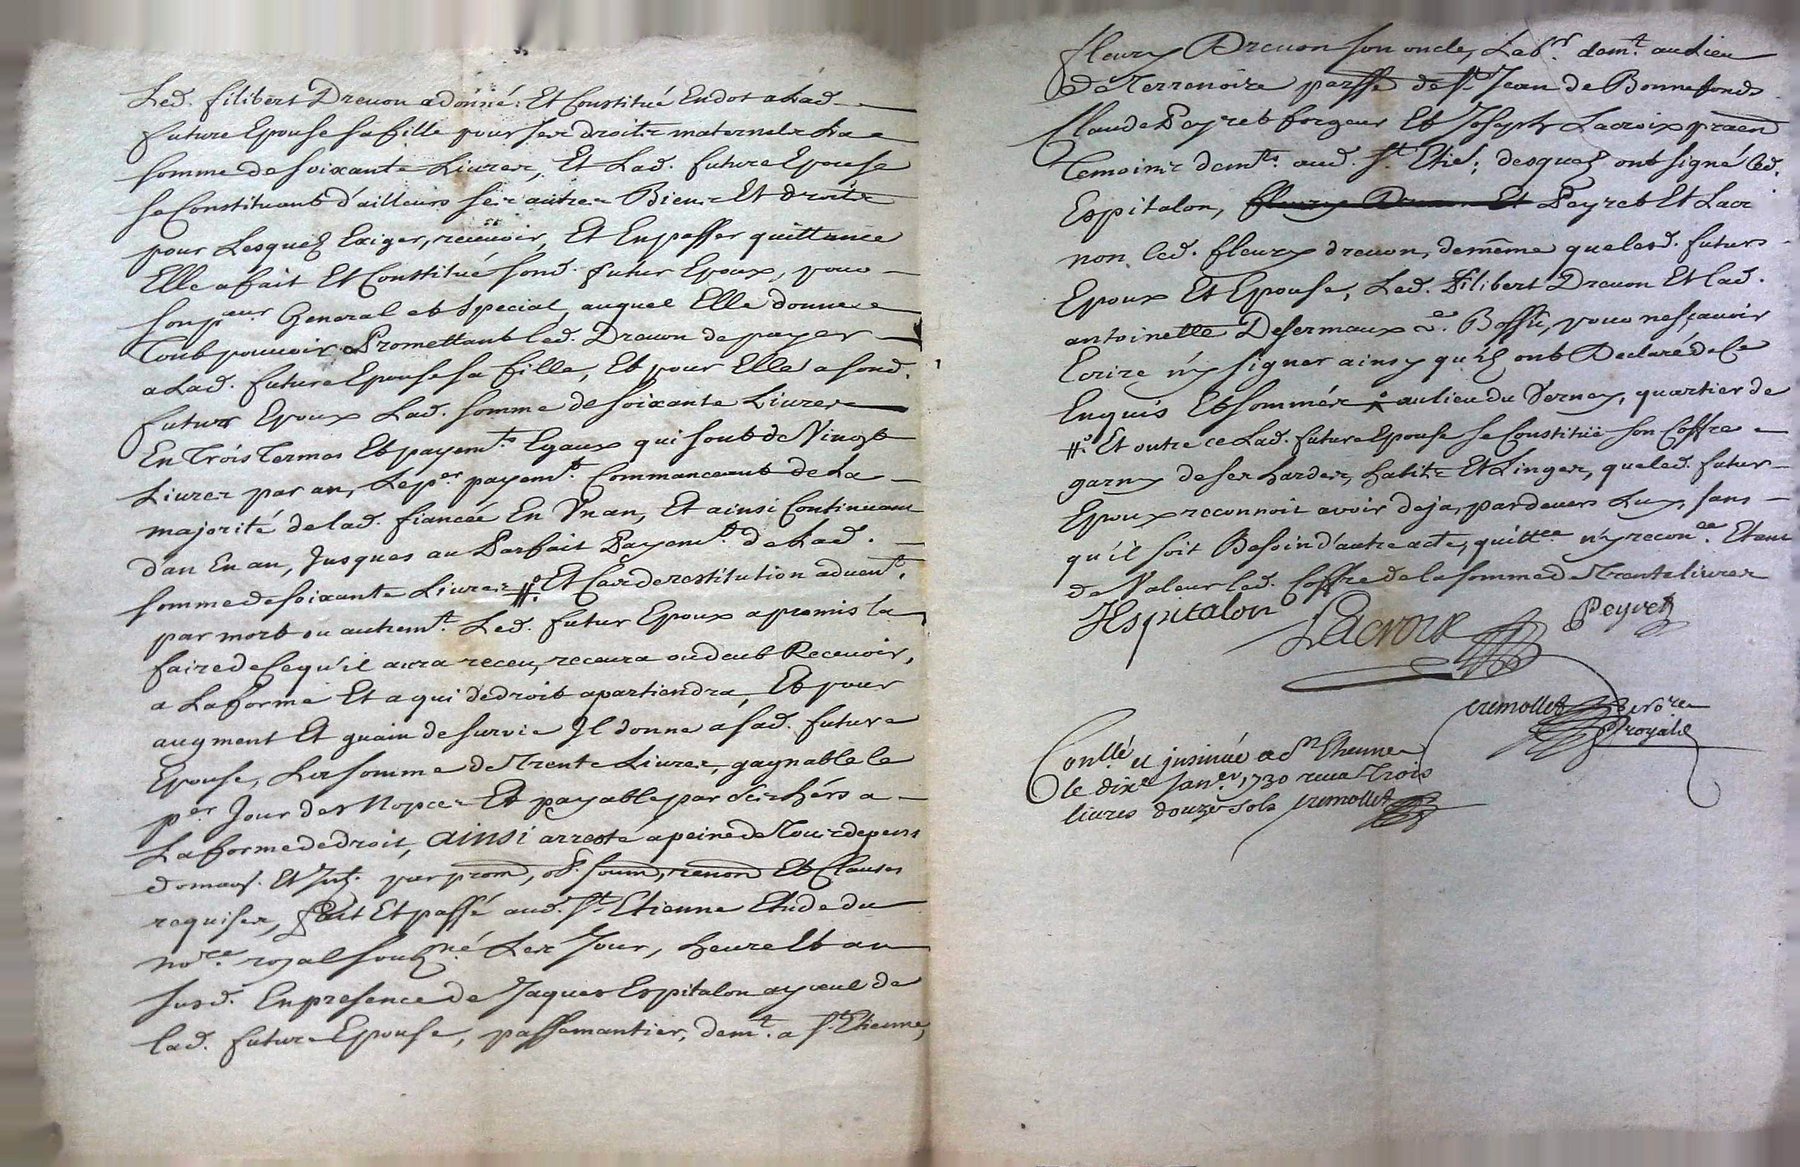 Led. filibert Drevon a donné, Et Constitué En dot a Lad.
future Epouse sa fille pour ses droits maternels La
somme de soixante Livres, Et Lad. future Epouse
se Constituant d'ailleurs ses autres Biens Et droits
pour Lesquels Exiger, recevoir, Et En passer quittance
Elle a fait Et Constitué sond. futur Epoux, pour
son p.eur General et special, auquel Elle donne
tout pouvoir Promettant led. Drevon de payer
a Lad. future Epouse sa fille, Et pour Elle a sond.
futur Epoux Lad. somme de soixante Livres
En Trois Termes Et payem.ts Egaux qui sont de Vingt
Livres par an, Le p.er payem.t Commanceant de La
majorité de lad. fiancée En Un an, Et ainsi Continuant
d'an En an, Jusques au Parfait Payem.t de Lad.
somme de soixante Livres #. Et Cas de restitution advent.
par mort ou autrem.t Led. futur Epoux a promis la
faire de Ce qu'il aura receu, recevra ou deub Recevoir,
a La forme Et a qui de droit apartiendra, Et pour
augment Et guain de survie Il donne a sad. future
Epouse, La somme de Trente Livres, gagnable le
p.er Jour des Nopces Et payable par ses hers a
La forme de droit, ainsi arresté a peine de Tous depens
domag. Et Int. par prom, ob. soum, renon Et Clauses
requises, fait Et passé aud. St. Etienne Etude du
no.re royal souz.né Les Jour, heure Et an
susd. En presence de Jaques Espitalon ayeul de
lad. future Epouse, passemantier, dem.t a St. Etienne,
fleury Drevon son oncle, Lab.r dem.t au Lieu
de Terrenoire passe de St. Jean de Bonnefonds
Claude Peyret forgeur Et Joseph Lacroix praen
Temoins dem.ts aud. St. Etie.; desquels ont signé led.
Espitalon, fleury Drevon Et Peyret Et Lacr
non led. fleury drevon, de même que lesd. futurs
Epoux Et Epouse, Led. Filibert Drevon Et lad.
antoinette Desermaux v.e Bossu, pour ne sçavoir
Ecrire n'y signer ainsy qu'ils ont Declaré de Ce
Enquis Et sommés au lieu du Verney, quartier de
#. Et outre ce Lad. future Epouse se Constitue son Coffre
garny de ses hardes, habits Et Linges, que led. futur
Epoux reconnoit avoir deja, pardevers Luy, sans
qu'il soit Besoin d'autre acte, quitt.ce n'y recon.ce Etant
de Valeur led. Coffre de la somme de Trente livres
JEspitalon Lacroix Peyret
cremollet no.re
royal
Conllé et jnsinué a St. Etienne
le dix.e Jan.er 1730 receu Trois
livres douze sols cremollet